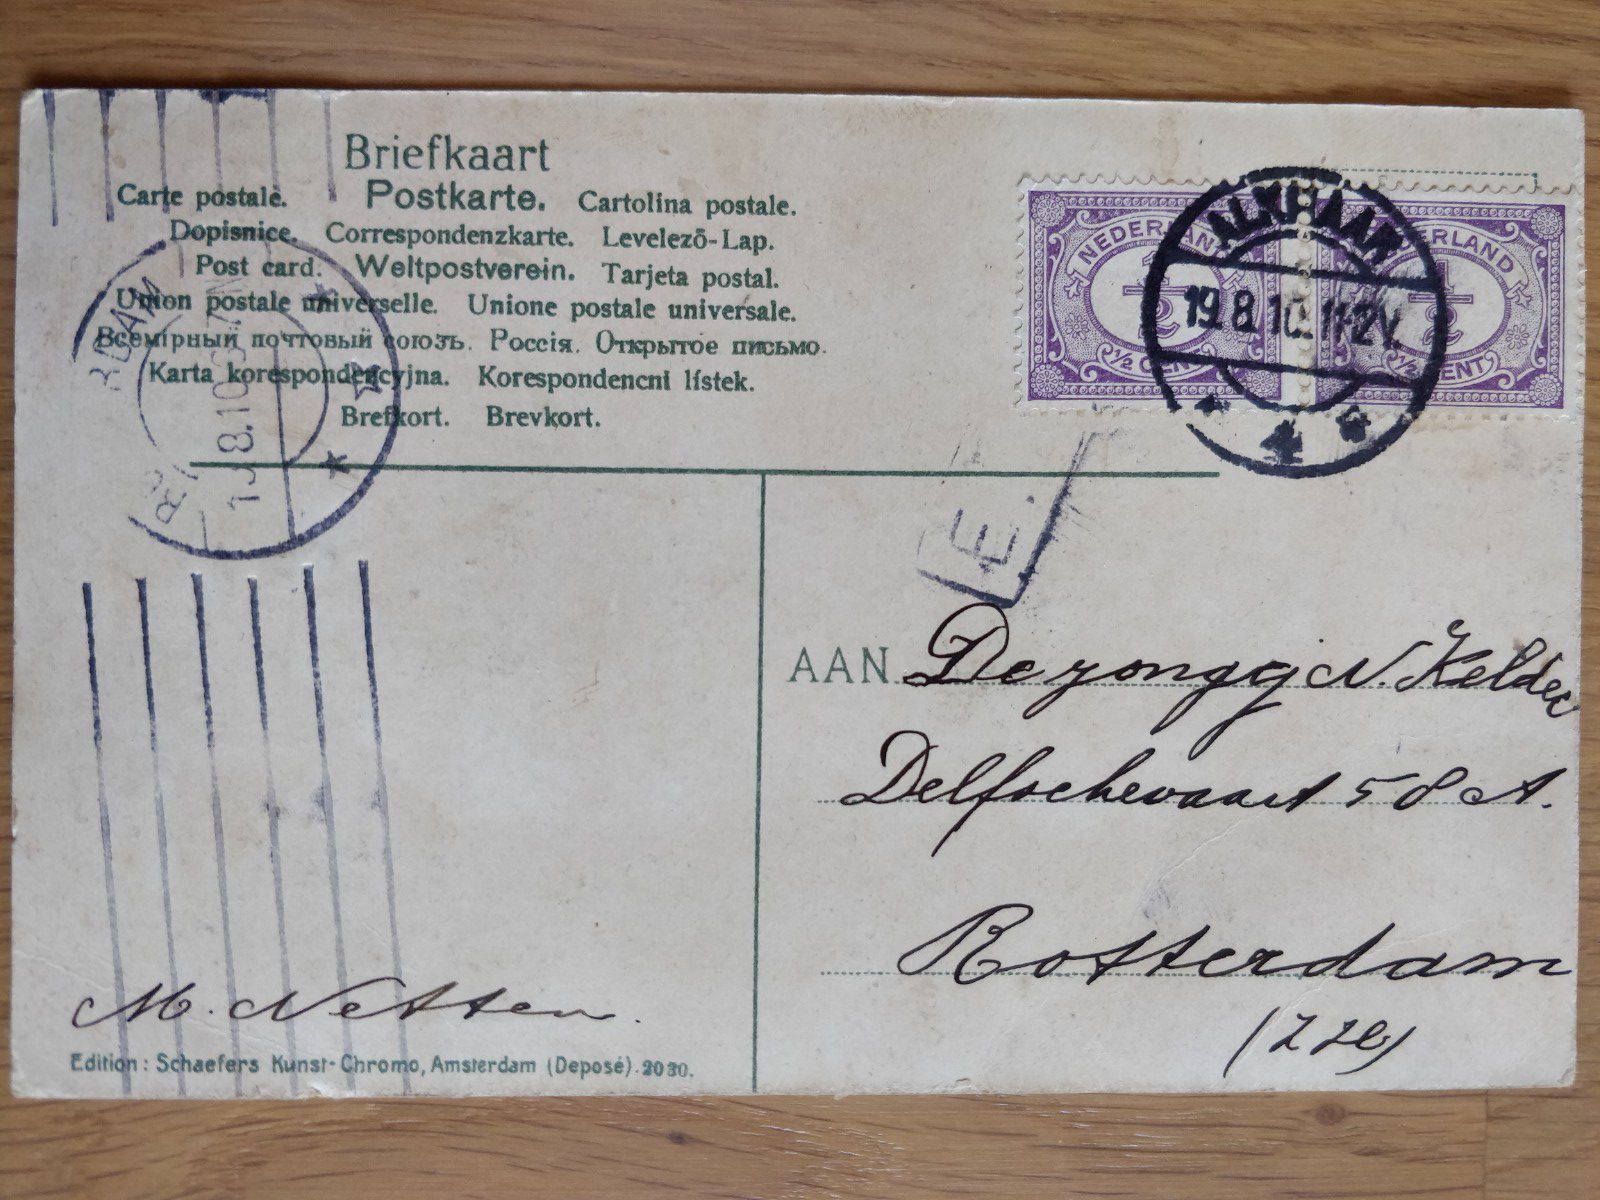 Briefkaart
Carte postale. Postkarte. Cartolina postale.
Dopisnice. Correspondenzkarte. Levelező-Lap.
Post card. Weltpostverein. Tarjeta postal.
Union postale universelle. Unione postale universale.
Всемірный почтовый союзъ. Россія. Открытое письмо.
Karta korespondencyjna. Korespondencni lístek.
Brefkort. Brevkort.
NEDERLAND
½ CENT
NEDERLAND
½ CENT
ALKMAAR
19.8.10.11-12V.
4
RDAM
8.10
E.
AAN De jongej N. Kelder
Delfschevaart 58 A.
Rotterdam
M. Netten.
Edition: Schaefers Kunst-Chromo, Amsterdam (Deposé) 2030.